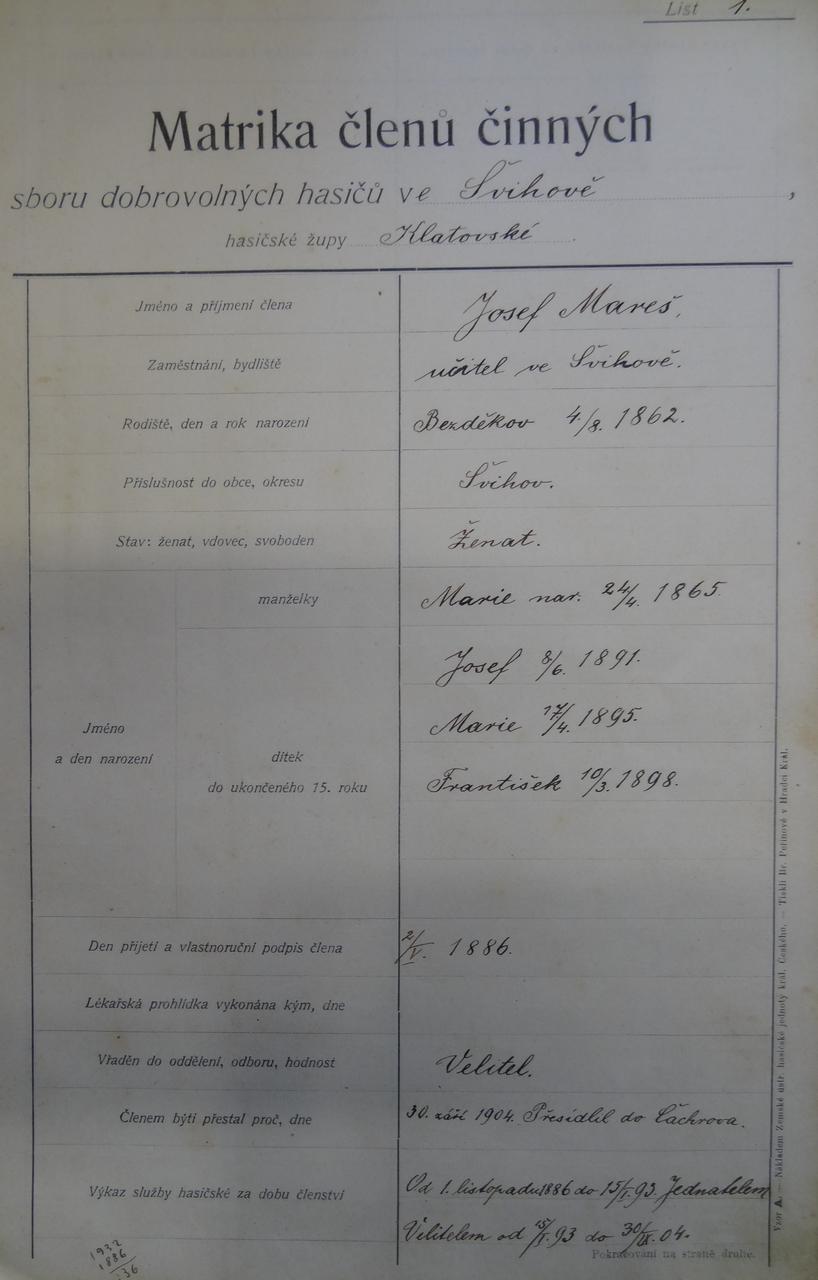 List 1.
Matrika členů činných
sboru dobrovolných hasičů ve Švihově,
hasičské župy Klatovské
Jméno a příjmení člena Josef Mareš,
Zaměstnání, bydliště učitel ve Švihově.
Rodiště, den a rok narození Bezděkov 4/8. 1862.
Příslušnost do obce, okresu Švihov.
Stav: ženat, vdovec, svoboden Ženat.
manželky Marie nar. 24/4. 1865
Josef 8/6. 1891.
Jméno Marie 17/4. 1895.
a den narození dítek
do ukončeného 15. roku František 10/3. 1898.
Den přijetí a vlastnoruční podpis člena 2/V. 1886.
Lékařská prohlídka vykonána kým, dne
Vřaděn do oddělení, odboru, hodnost Velitel.
Členem býti přestal proč, dne 30. září 1904. Přesídlil do Čachrova.
Výkaz služby hasičské za dobu členství Od 1. listopadu 1886 do 15/I. 93 Jednatelem
Velitelem od 15/I. 93 do 30/IX. 04.
Pokračování na straně druhé.
1932
1886
36
Vzor A. — Nákladem Zemské ústř. hasičské jednoty král. Českého. — Tiskli Br. Peřinové v Hradci Král.